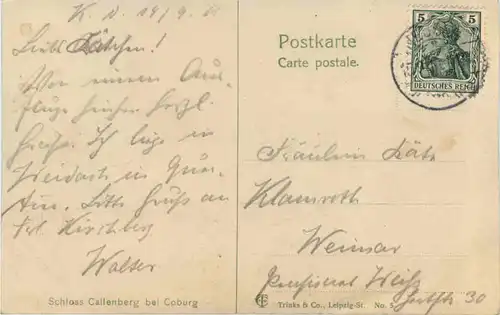 K. d. 19/9.
Liebes Kätchen!
Von einem Aus-
fluge hierher herzl.
Grüße. Ich liege in
Weidach in Quar-
tier. Bitte Gruß an
Frl. Kirchberg
Walter
Schloss Callenberg bei Coburg
Postkarte
Carte postale.
5 5
DEUTSCHES REICH
Fräulein Käte
Klamroth
Weimar
Pensionat Weiß
30
Trinks & Co., Leipzig-St. No. 5